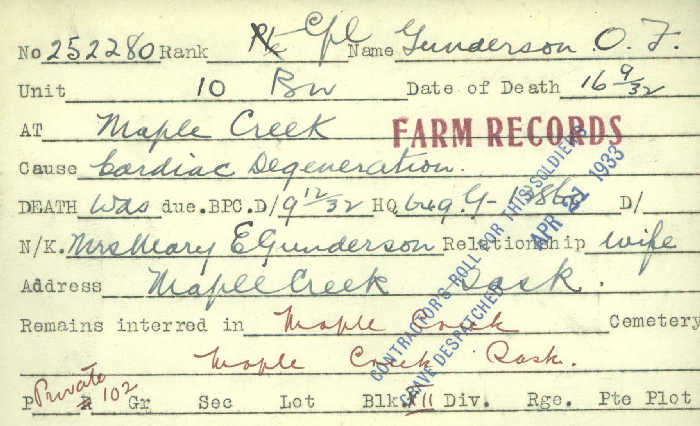 No 252280 Rank Pte Cpl Name Gunderson O. F.
Unit 10 Bn Date of Death 16 9/32
AT Maple Creek FARM RECORDS
Cause Cardiac Degeneration.
DEATH Was due. BPC. D/ 9 12/32 HQ 649-G- D/
N/K. Mrs Mary E Gunderson Relationship wife
Address Maple Creek Sask.
Remains interred in Maple Creek Cemetery
Maple Creek Sask.
Private 102
P R Gr Sec Lot Blk. 11 Div. Rge. Pte Plot
CONTRACTOR'S ROLL FOR THIS SOLDIERS
GRAVE DESPATCHED APR 21 1933